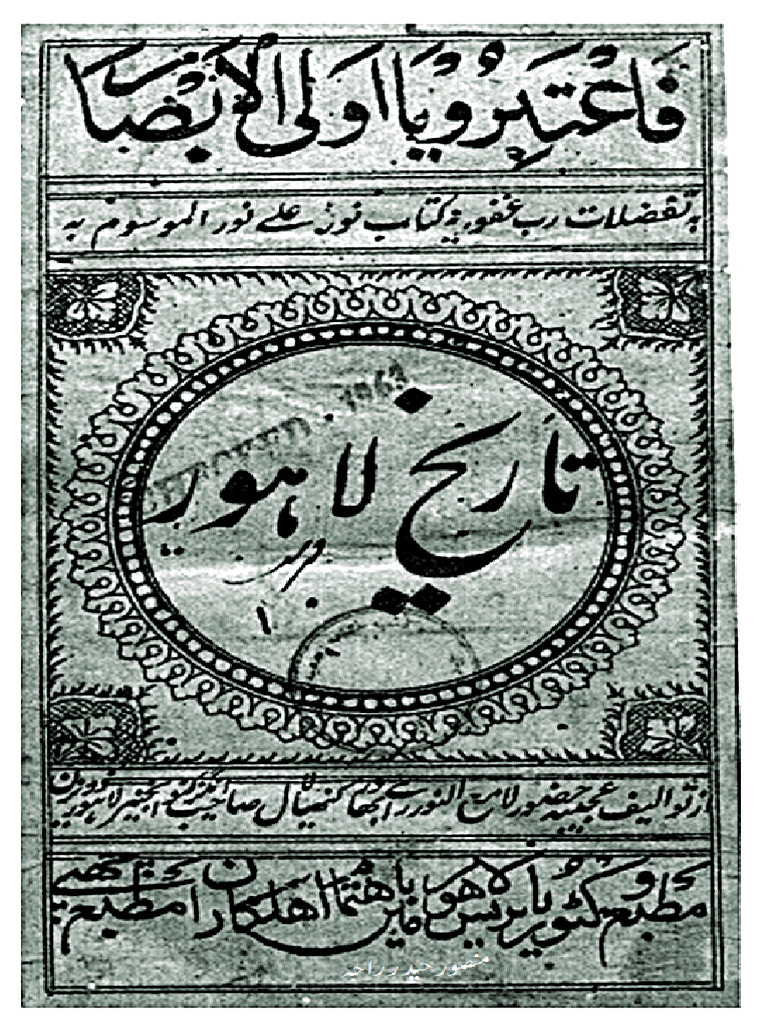 فَاعْتَبِرُوْ يَا اُولِی الْاَبْصَار
بہ تفضلات رب غفور یہ کتاب نورٌ علے نور الموسوم بہ
1963
تاریخ لاہور
۱
از توالیف عجیبہ حضور لامع النور رائے بہادر کنھیالال صاحب اگزکٹو انجنیر لاہور
مطبع وکٹوریا پریس لاہور میں باہتمام اھلکاران مطبع چھپی
منصور حیدر راجہ